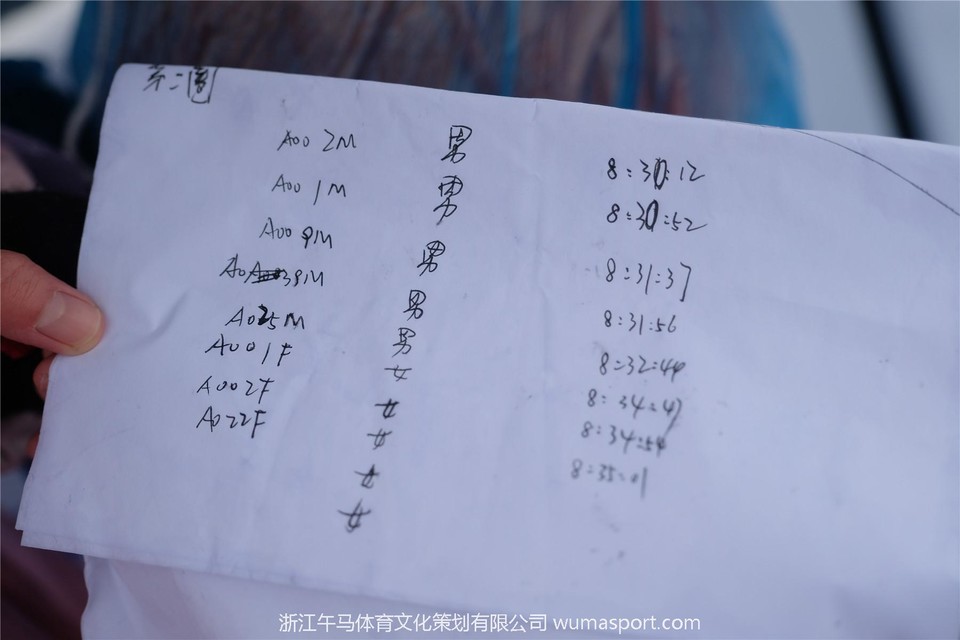 第二圈
A002M 男 8:30:12
A001M 男 8:30:52
A009M 男 8:31:37
A038M 男 8:31:56
A025M 男 8:32:44
A001F 女 8:34:47
A002F 女 8:34:54
A022F 女 8:35:01
女
女
浙江午马体育文化策划有限公司 wumasport.com